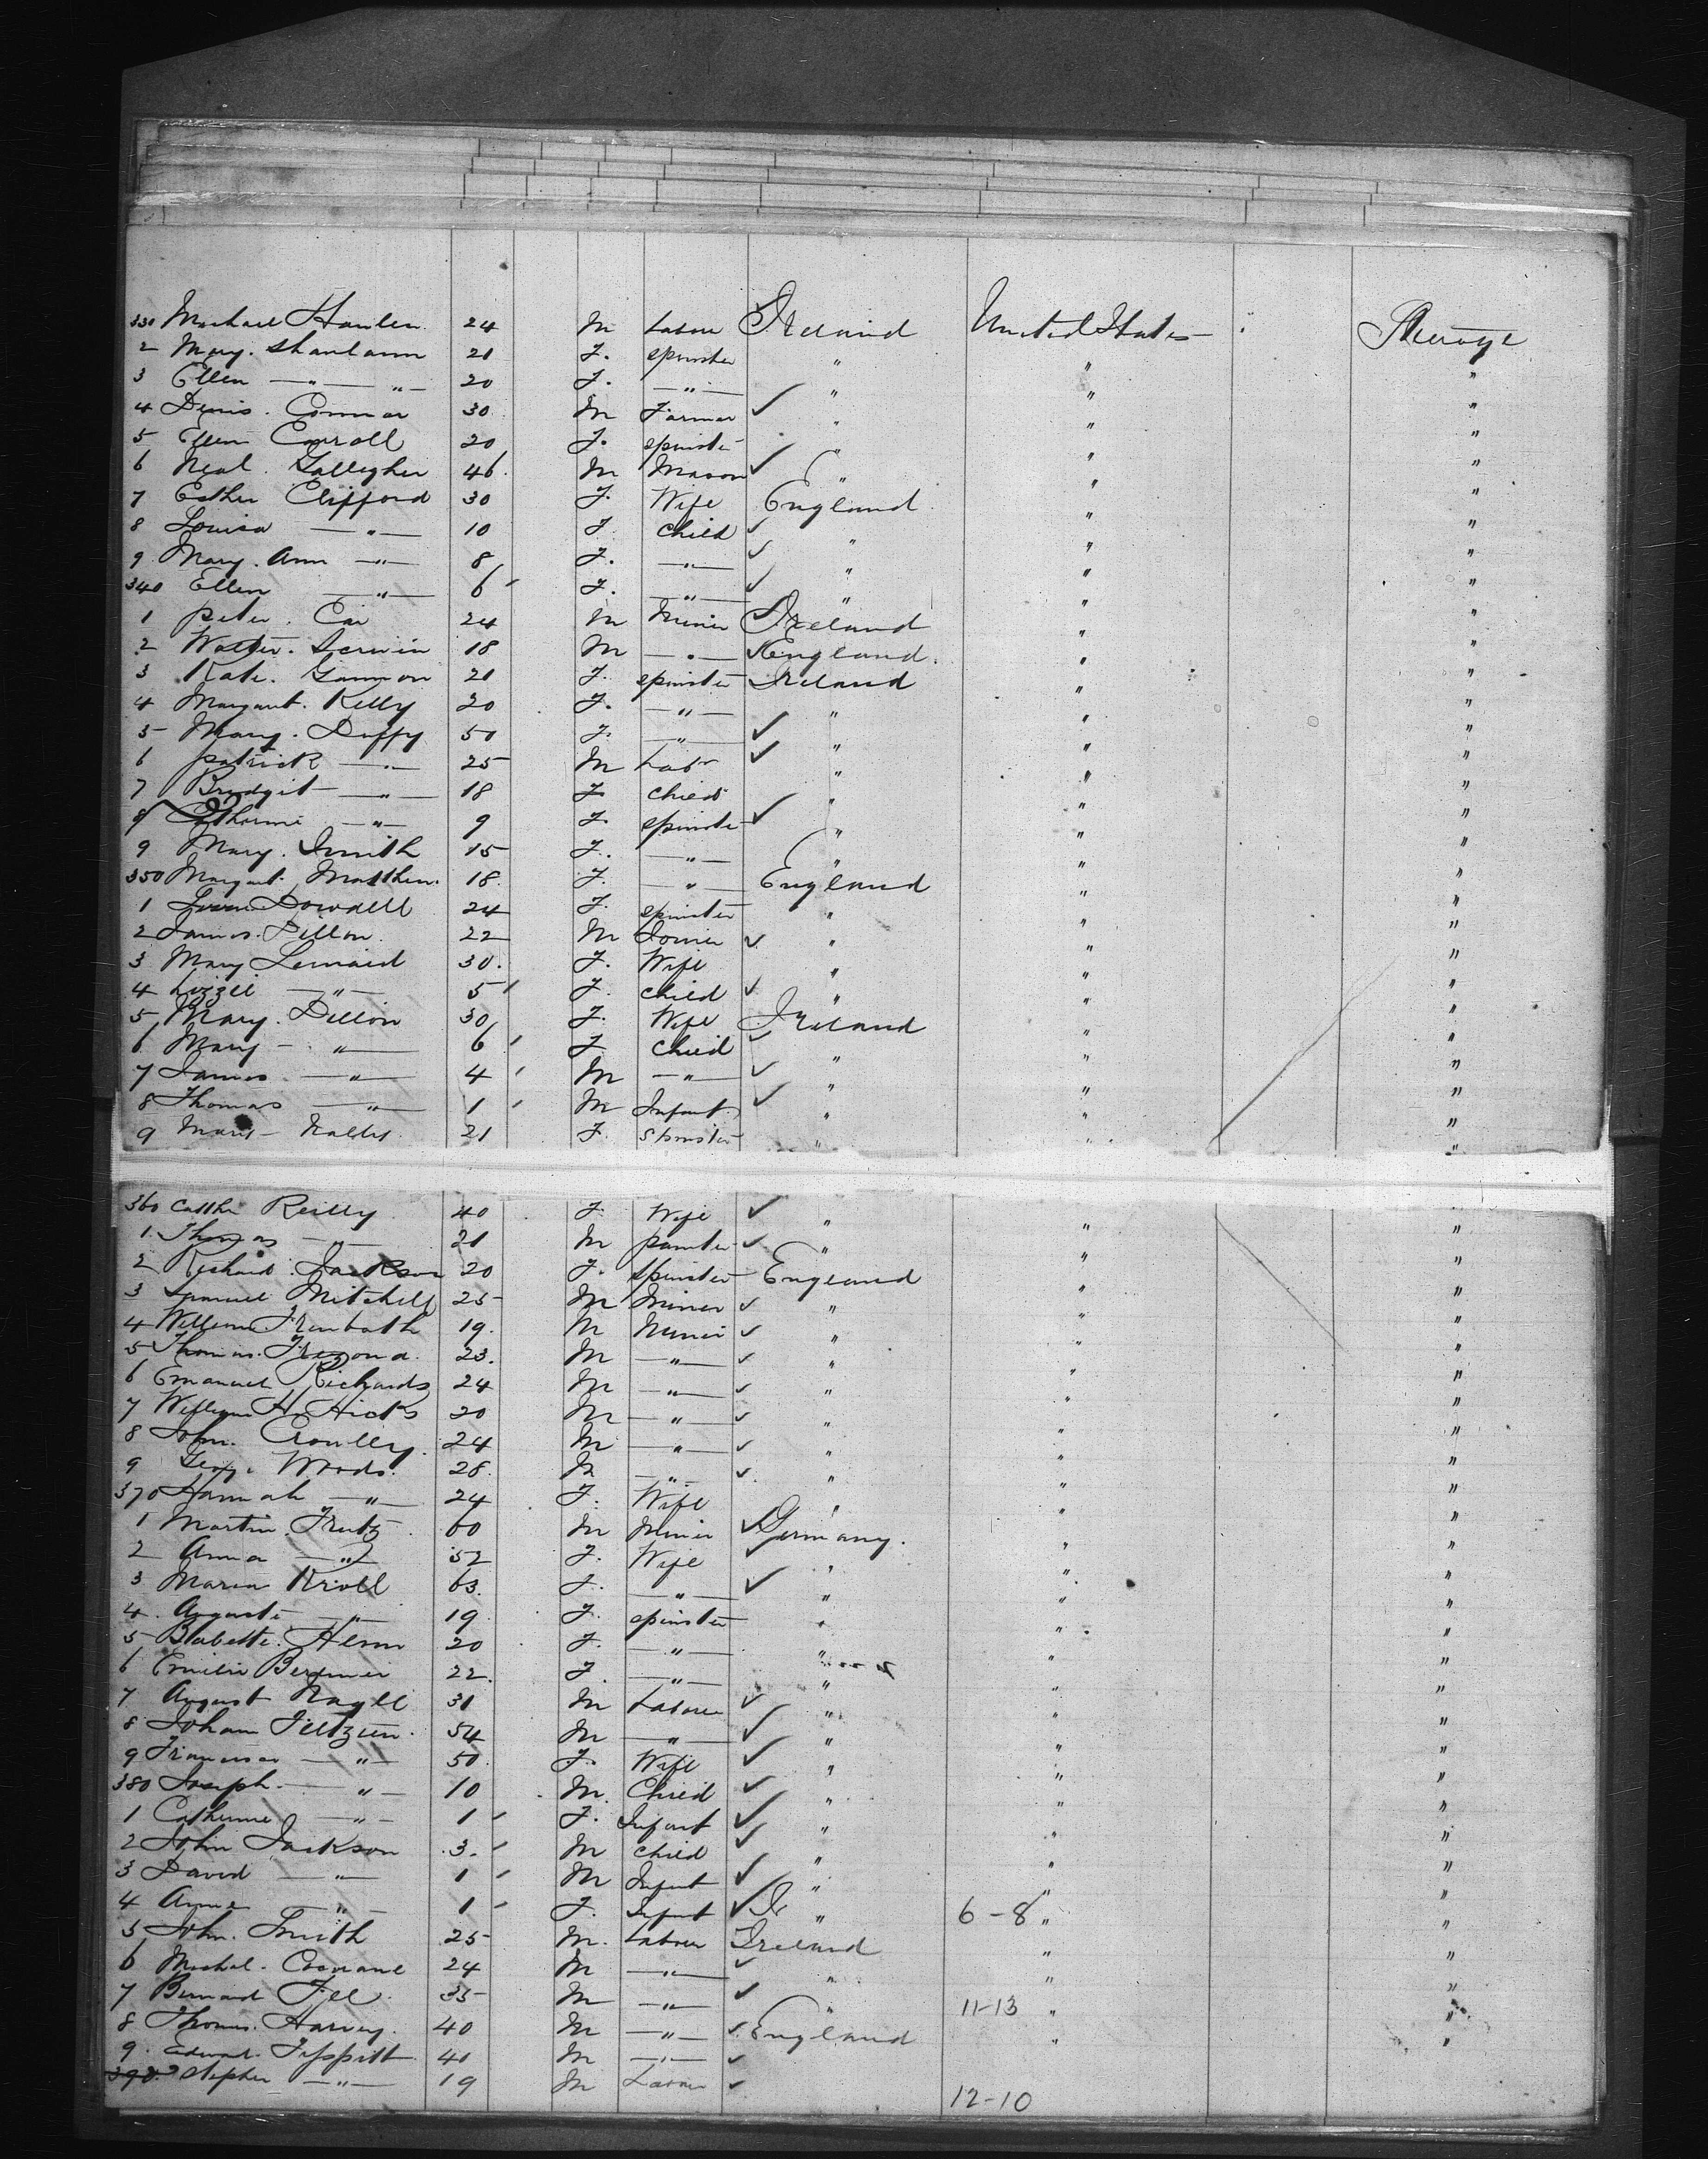 330 Michael Hanlen 24 M Labour Ireland United States Steerage
2 Mary. Shanlann 21 F. spinster " " "
3 Ellen —"— "— 20 F. —"— " " "
4 Denis. Connor 30 M Farmer ✓ " " "
5 Ellen Carroll 20 F. spinster " " "
6 Neal. Gallegher 46. M Mason ✓ " " "
7 Esther Clifford 30 F. Wife England " "
8 Louisa —"— 10 F child ✓ " " "
9 Mary. Ann —"— 8 F. —"— ✓ " " "
340 Ellen —"— 6 F. —"— ✓ " " "
1 peter. 24 M Miner Ireland " "
2 Walter. 18 M —"— ✓ England. " "
3 Kate. Gannon 21 F. spinster Ireland " "
4 Margaret. Kelly 20 F. —"— " " "
5 Mary. Duffy 50 F. —"— ✓ " " "
6 patrick —"— 25 M Labr ✓ " " "
7 Bridgit —"— 18 F child " " "
8 Catherine —"— 9 F. spinster ✓ " " "
9 Mary. Smith 15 F. —"— " " "
350 Margaret. Matthew. 18. F. —"— England " "
1 Dowdell 24 F. spinster " " "
2 James. Dillon 22 M Joiner ✓ " " "
3 Mary Lennard 30. F. Wife " " "
4 Lizzie —"— 5 F. child ✓ " " "
5 Mary. Dillon 30 F. Wife Ireland " "
6 Mary —"— 6 F child ✓ " " "
7 James —"— 4 M —"— ✓ " " "
8 Thomas —"— 1 M Infant ✓ " " "
9 Mary 21 F. Spinster " " "
360 Cathe Reilly 40 F. Wife ✓ " " "
1. Thomas —"— 21 M painter ✓ " " "
2 Richard. Jackson 20 F. Spinster England " "
3 Samuel Mitchell 25 M Miner ✓ " " "
4 William Trenbath 19. M Miner ✓ " " "
5 Thomas. Trezona. 23. M —"— ✓ " " "
6 Emanuel Richards 24 M —"— ✓ " " "
7 William H. Hicks 20 M —"— ✓ " " "
8 John. Crowlley. 24 M —"— ✓ " " "
9 George Woods. 28. M —"— ✓ " " "
370 Hannah —"— 24 F. Wife " " "
1 Martin. Frutz 60 M Miner ✓ Germany. " "
2 Anna —"— 52 F. Wife ✓ " " "
3 Maria Kroll 63. F. —"— ✓ " " "
4. Auguste —"— 19 F. spinster " " "
5 Babette. Henn 20 F. —"— " " "
6 Emilie 22. F. —"— " " "
7 August Nagel 31 M Labour ✓ " " "
8 Johann 54 M —"— ✓ " " "
9 Francisca —"— 50. F. Wife ✓ " " "
380 Joseph —"— 10 M. Child ✓ " " "
1 Catherine —"— 1 F. Infant ✓ " " "
2 John Jackson 3. M child ✓ " " "
3 David —"— 1 M Infant ✓ " " "
4 Anne —"— 1 F. Infant ✓ Ir " 6-8 " "
5 John. Smith 25 M. Labour Ireland " "
6 Michal. 24 M —"— ✓ " " "
7 Bernard 35 M —"— ✓ " 11-13 " "
8 Thomas. Harvey. 40 M —"— ✓ England " "
9. Edward. Tippitt 41 M —"— ✓
390 Stephen —"— 19 M Labour ✓ 12-10